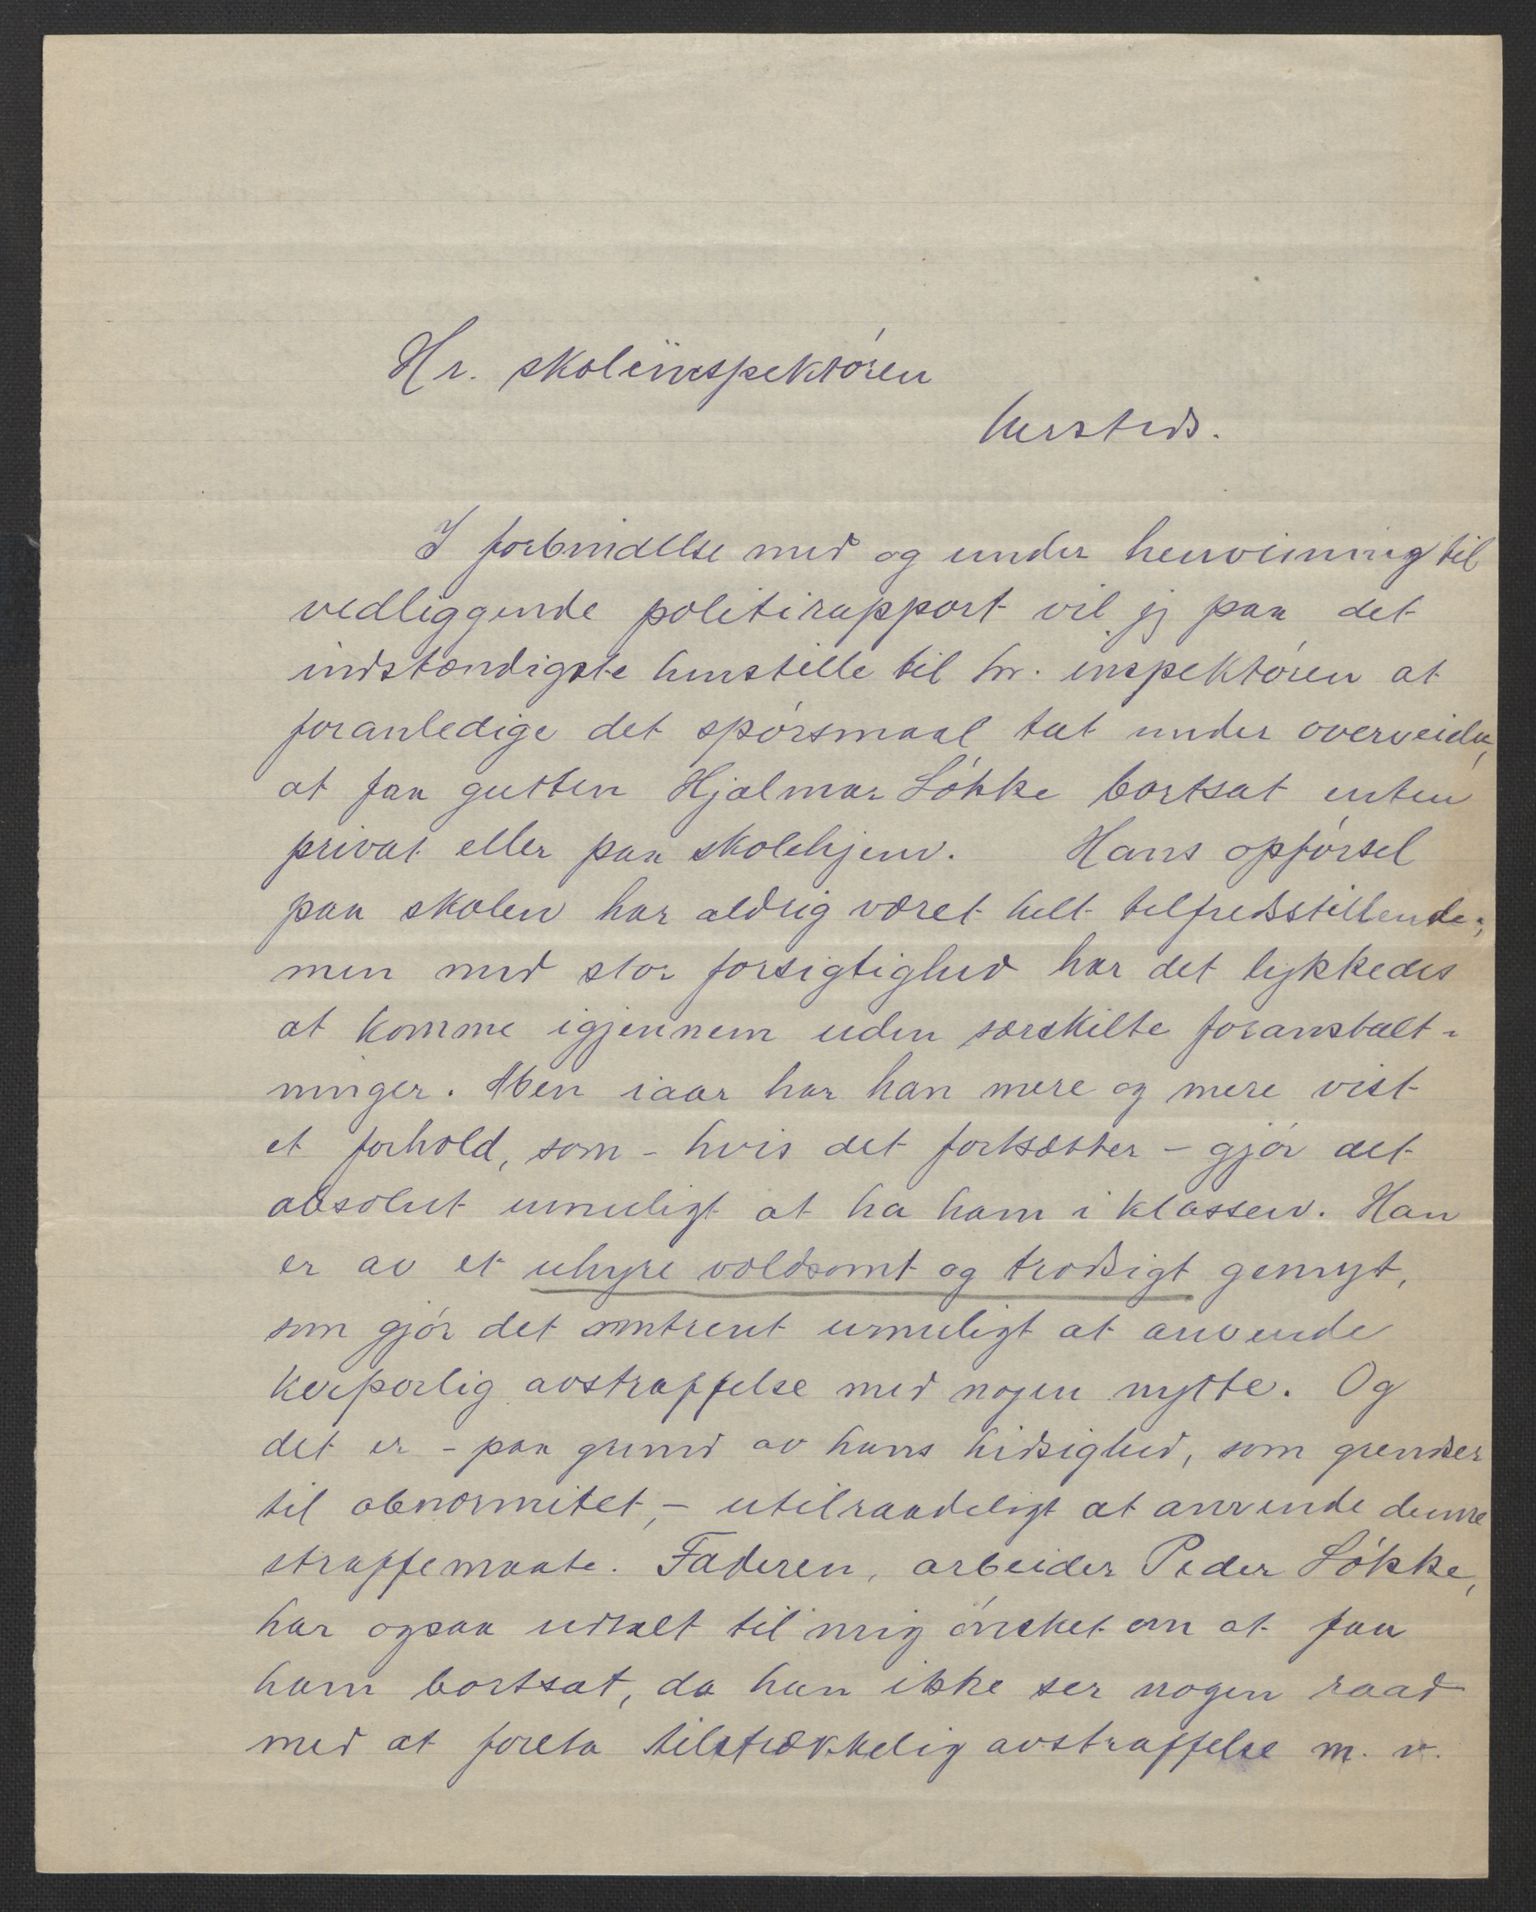 Hr. skoleinspektøren
hersteds.
I forbindelse med og under henvisning til
vedliggende politirapport vil jeg paa det
indstændigste henstille til hr. inspektøren at
foranledige det spørsmaal tat under overveielse,
at faa gutten Hjalmar Løkke bortsat enten
privat eller paa skolehjem. Hans opførsel
paa skolen har aldrig været helt tilfredsstillende;
men med stor forsigtighed har det lykkedes
at komme igjennem uden særskilte foranstalt-
ninger. Men iaar har han mere og mere vist
et forhold, som – hvis det fortsætter – gjør det
absolut umuligt at ha ham i klassen. Han
er av et uhyre voldsomt og trodsigt gemyt,
som gjør det omtrent umuligt at anvende
korporlig avstraffelse med nogen nytte. Og
det er – paa grund av hans hidsighed, som grendser
til abnormitet, – utilraadeligt at anvende denne
straffemaate. Faderen, arbeider Peder Løkke,
har ogsaa udtalt til mig ønsket om at faa
ham bortsat, da han ikke ser nogen raad
med at foreta tilstrækkelig avstraffelse m. v.